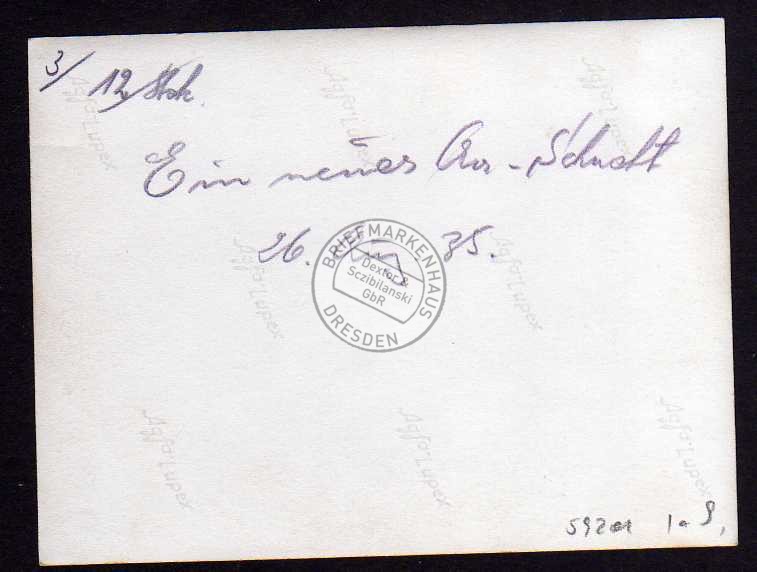 3/ 12 Stck.
Ein neues Au - Schacht
26. 35.
BRIEFMARKENHAUS
Dexfor &
Sczibilanski
GbR
DRESDEN
Agfa-Lupex
Agfa-Lupex
Agfa-Lupex
Agfa-Lupex
Agfa-Lupex
Agfa-Lupex
Agfa-Lupex
Agfa-Lupex